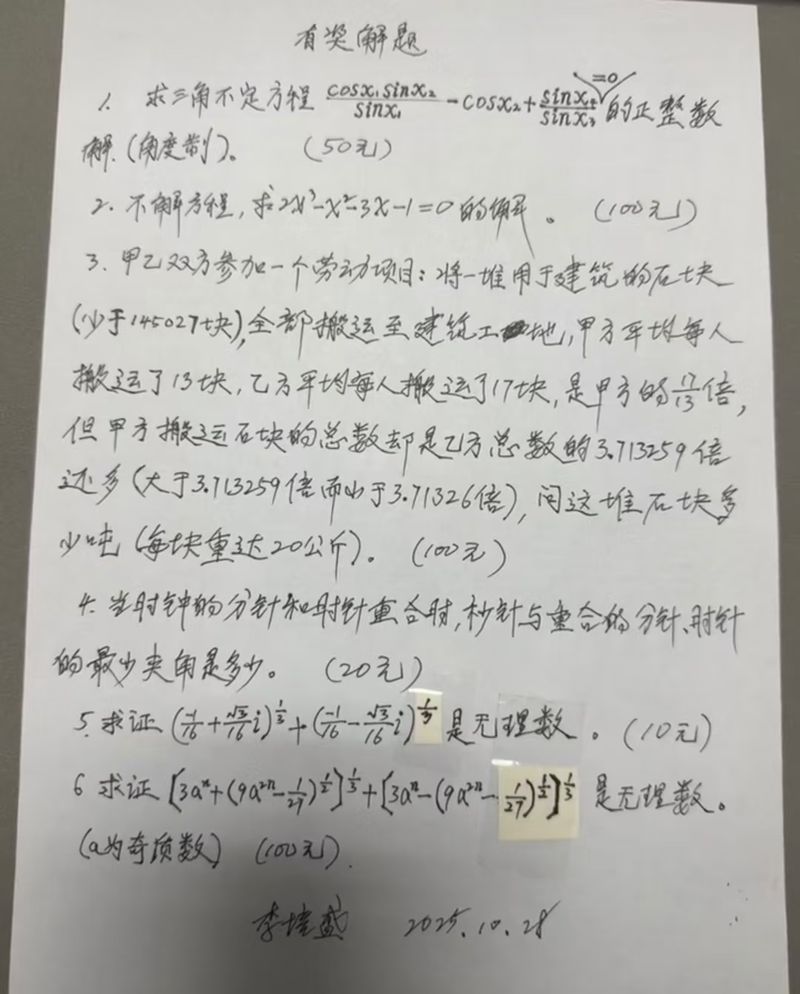 有奖解题
1. 求三角不定方程 cosx₁sinx₂/sinx₁ - cosx₂ + sinx₄/sinx₃ =0 的正整数
解.(角度制)。 (50元)
2. 不解方程,求2x³-x²-3x-1=0的解。 (100元)
3. 甲乙双方参加一个劳动项目:将一堆用于建筑的石块
(少于145027块),全部搬运至建筑工地,甲方平均每人
搬运了13块,乙方平均每人搬运了17块,是甲方的17/13倍,
但甲方搬运石块的总数却是乙方总数的3.713259倍
还多(大于3.713259倍而小于3.71326倍),问这堆石块多
少吨(每块重达20公斤)。 (100元)
4. 当时钟的分针和时针重合时,秒针与重合的分针、时针
的最少夹角是多少。 (20元)
5. 求证 (-1/16+√3/16 i)^(1/3)+(-1/16-√3/16 i)^(1/3) 是无理数。(10元)
6 求证 [3aⁿ+(9a²ⁿ-1/27)^(1/2)]^(1/3)+[3aⁿ-(9a²ⁿ-1/27)^(1/2)]^(1/3) 是无理数。
(a为奇质数) (100元).
李 盛 2025.10.28